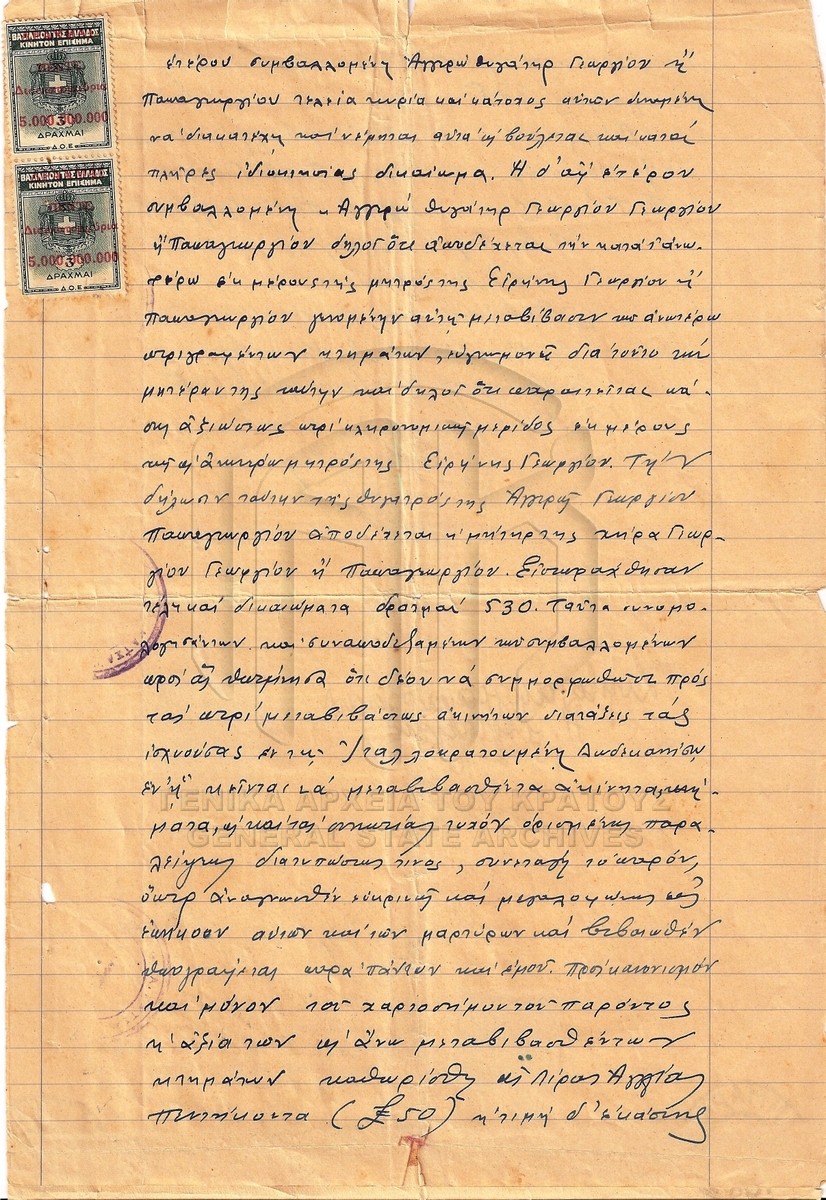 ΒΑΣΙΛΕΙΟΝ ΤΗΣ ΕΛΛΑΔΟΣ
ΚΙΝΗΤΟΝ ΕΠΙΣΗΜΑ
5.000.000.000
ΔΡΑΧΜΑΙ
Δ.Ο.Ε.
ΒΑΣΙΛΕΙΟΝ ΤΗΣ ΕΛΛΑΔΟΣ
ΚΙΝΗΤΟΝ ΕΠΙΣΗΜΑ
5.000.000.000
ΔΡΑΧΜΑΙ
Δ.Ο.Ε.
ἑτέρου συμβαλλομένη Ἀγγερώ θυγάτηρ Γεωργίου ἤ
Παπαγεωργίου τελεία κυρία καὶ κάτοχος αὐτῶν δυναμένη
νὰ διακατέχη καὶ νέμηται αὐτὰ ὡς βούλεται καὶ κατὰ
πλῆρες ἰδιοκτησίας δικαίωμα. Ἡ δ' ἀφ' ἑτέρου
συμβαλλομένη Ἀγγερώ θυγάτηρ Γεωργίου Γεωργίου
ἤ Παπαγεωργίου δηλοῖ ὅτι ἀποδέχεται τὴν κατὰ τ' ἀνω-
τέρω ἐκ μέρους τῆς μητρός της Εἰρήνης Γεωργίου ἤ
Παπαγεωργίου γενομένην αὐτῇ μεταβίβασιν τῶν ἀνωτέρω
περιγραφέντων κτημάτων, εὐγνωμονεῖ διὰ τοῦτο τὴν
μητέραν της ταύτην καὶ δηλοῖ ὅτι παραιτεῖται πά-
σης ἀξιώσεως περὶ κληρονομικῆς μερίδος ἐκ μέρους
τῆς μητρός της Εἰρήνης Γεωργίου. Τὴν
δήλωσιν ταύτην τῆς θυγατρός της Ἀγγερῶς Γεωργίου
Παπαγεωργίου ἀποδέχεται ἡ μήτηρ της χήρα Γεωρ-
γίου Γεωργίου ἤ Παπαγεωργίου. Εἰσεπράχθησαν
τέλη καὶ δικαιώματα δραχμαί 530. Ταῦτα συνομο-
λογησάντων καὶ συναποδεξαμένων τῶν συμβαλλομένων
πρὸς οὓς ὑπέμνησα ὅτι δέον νὰ συμμορφωθῶσι πρὸς
τὰς περὶ μεταβιβάσεως ἀκινήτων διατάξεις τὰς
ἰσχυούσας ἐν τῇ Ἰταλλοκρατουμένη Δωδεκανήσῳ
ἐν ᾗ κεῖνται τὰ μεταβιβασθέντα ἀκίνητα κτή-
ματα, ὡς καὶ τὰς συνεπείας τυχὸν ὁρισμένης παρα-
λείψεως διατυπώσεως τινος, συνετάγη τὸ παρόν,
ὅπερ ἀναγνωσθὲν εὐκρινῶς καὶ μεγαλοφώνως εἰς
ἐπήκοον αὐτῶν καὶ τῶν μαρτύρων καὶ βεβαιωθὲν
ὑπογράφεται παρὰ πάντων καὶ ἐμοῦ. Πρὸς κανονισμὸν
καὶ μόνον τοῦ χαρτοσήμου τοῦ παρόντος
ἡ ἀξία τῶν ὡς ἄνω μεταβιβασθέντων
κτημάτων καθωρίσθη εἰς Λίρας Ἀγγλίας
πεντήκοντα (£ 50) ἡ τιμὴ δ' ἑκάστης
ΓΕΝΙΚΑ ΑΡΧΕΙΑ ΤΟΥ ΚΡΑΤΟΥΣ
GENERAL STATE ARCHIVES